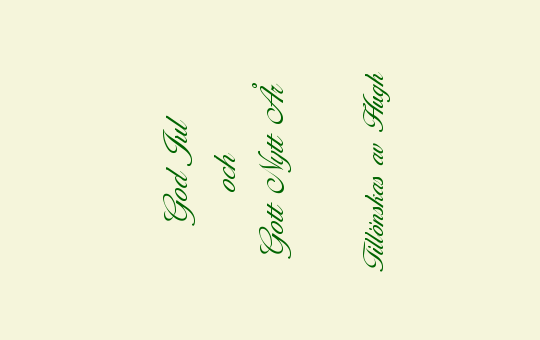 God Jul
och
Gott Nytt År
Tillönskas av Hugh